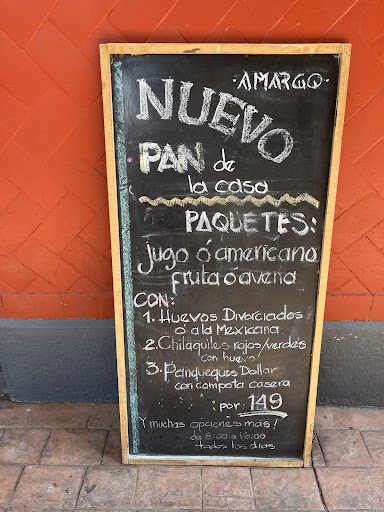 ·AMARGO·
NUEVO
PAN de
la casa
PAQUETES:
jugo ó americano
fruta ó avena
CON:
1. Huevos Divorciados
ó a la Mexicana
2. Chilaquiles rojos/verdes
con huevo
3. Panqueques Dollar
con compota casera
por 149
Y muchas opciones más!
de 8:00 a 16:00
todos los días